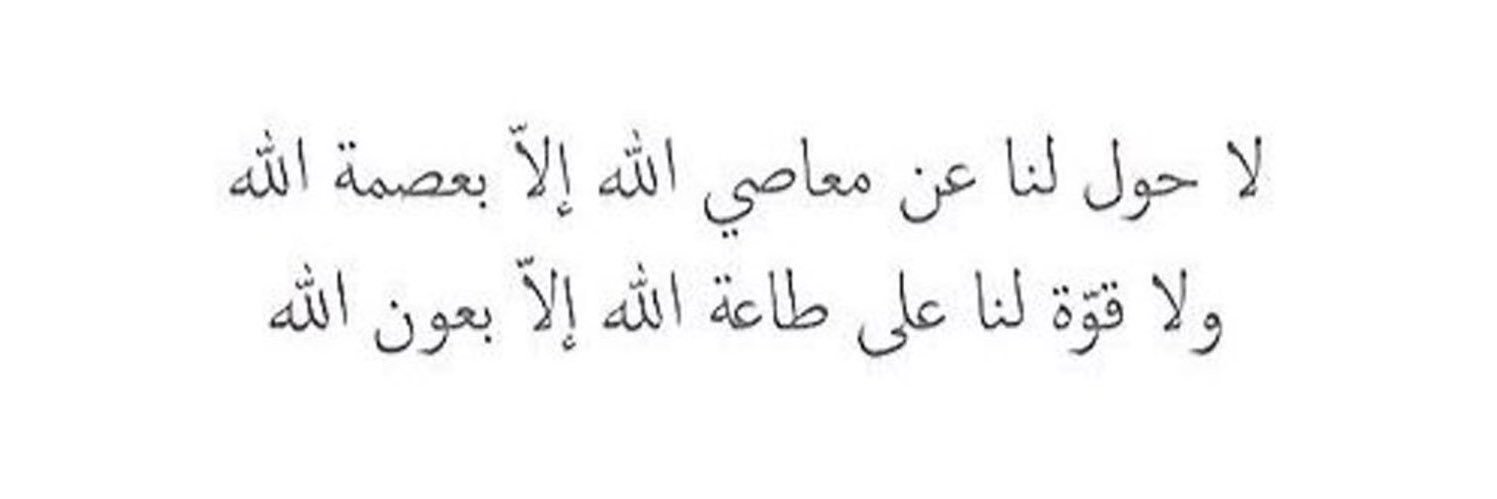 لا حول لنا عن معاصي الله إلاّ بعصمة الله
ولا قوّة لنا على طاعة الله إلاّ بعون الله